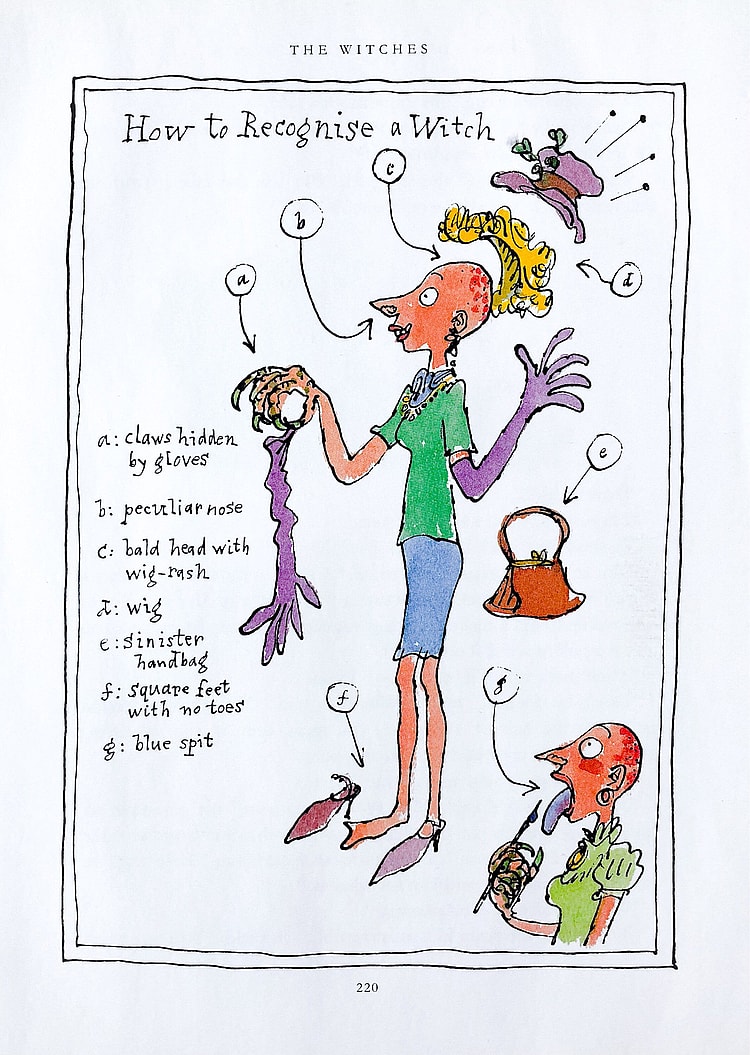 THE WITCHES
How to Recognise a Witch
c
b
a
d
a: claws hidden
by gloves
e
b: peculiar nose
c: bald head with
wig-rash
d: wig
e: sinister
handbag
f: square feet
with no toes
f
g
g: blue spit
220